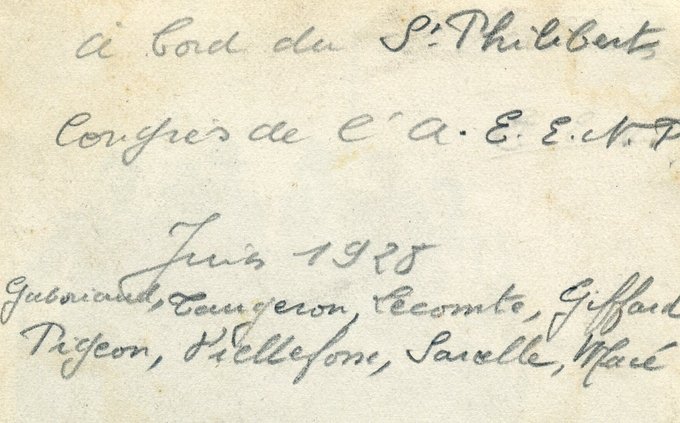 à bord du St Philibert
Congrès de l'A. E. E. N. P
Juin 1928
Gaboriaud, Taugeron, Lecomte, Giffard
Pigeon, Viellefosse, Sarelle, Macé